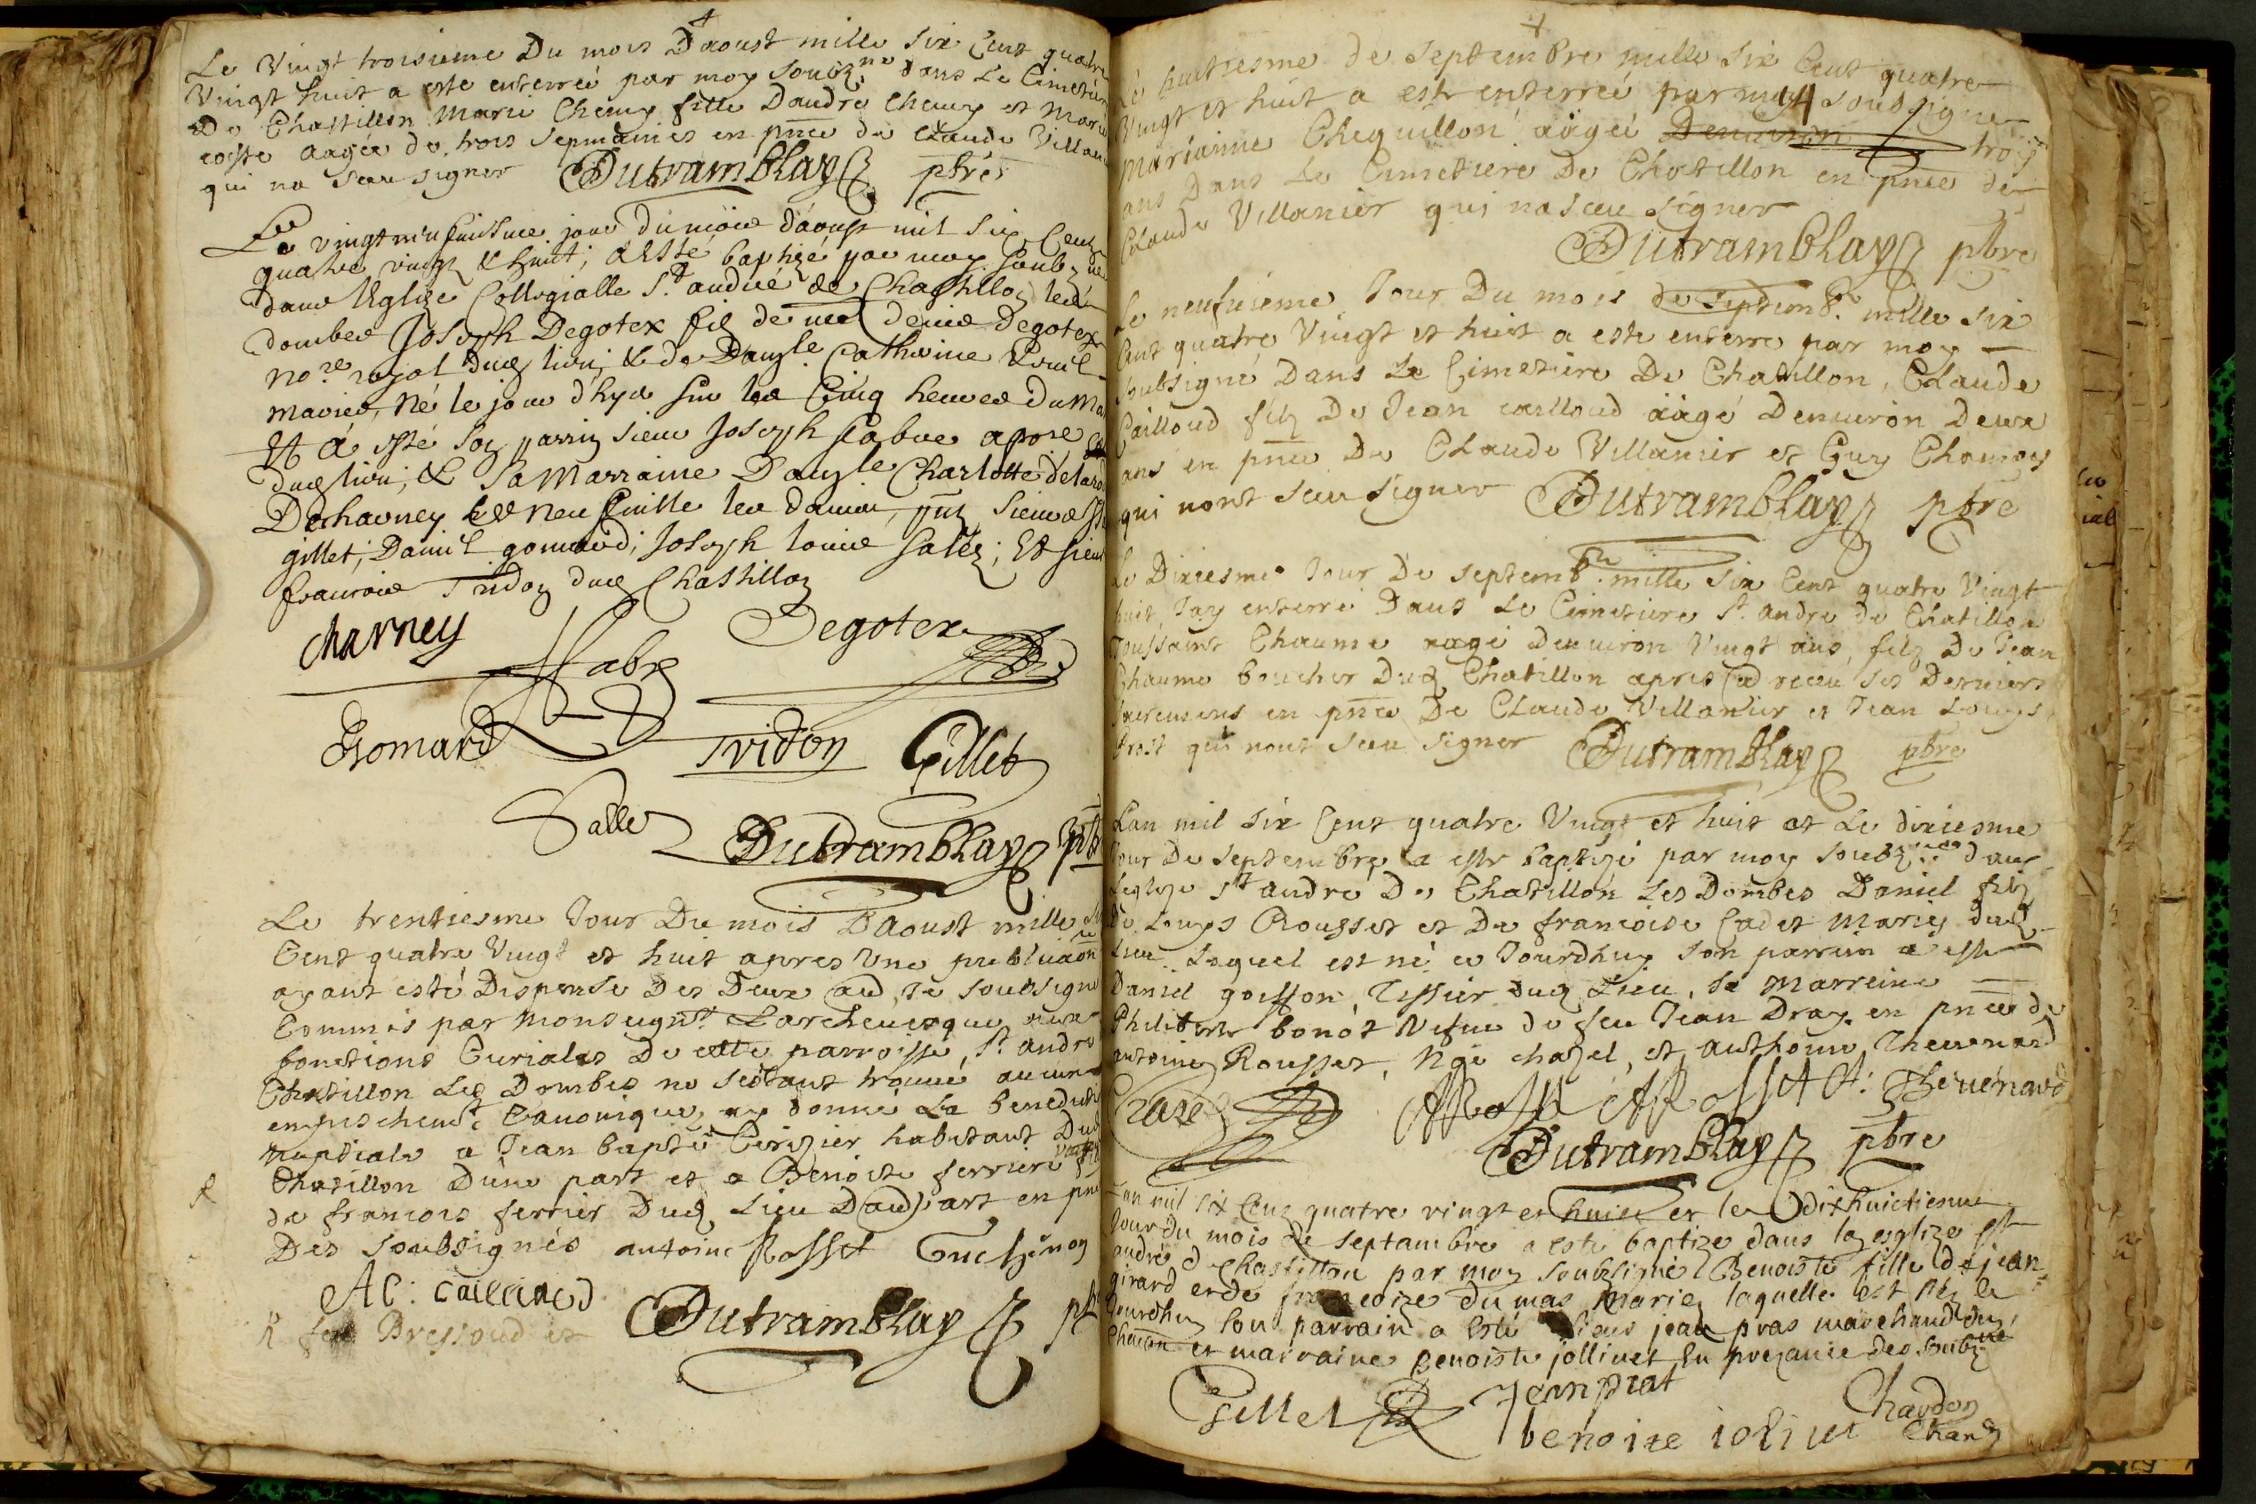 Le Vingt troisieme Du mois Daoust mille six Cent quatre
Vingt huit a este enterreé par moy soubz.ne dans Le Cimetiere
De Chastillon Marie Cheuy fille Dandre cheuy et Marie
aagée de trois sepmaines en pnce de Claude Villan
qui na sceu signer Dutramblay pbre
Le vingt neufuiesme jour du mois d'aoust mil six Centz
quatre vingtz & huit; a Esté baptizé par moy soubz.né
dans L'Eglize Collegialle St. andré de Chastillon les
dombes Joseph Degotex filz de me Degotex
no.re royal dud lieu; & de Damlle Catherine
mariés, Né le jour d'hyer sur les Cinq heures du Ma
Et a esté son parrin sieur Joseph fabre
dud lieu; & Sa Marraine Damlle Charlotte
Decharney
gillet; Daniel gomard; Joseph louis salez; Et sieur
francois Tridon dud Chastillon
Charney Fabre Degotex
Gomard Tridon Gillet
Salle Dutramblay pb
Le trentiesme Jour Du mois Daoust mille
Cent quatre Vingt et huit apres Vne publicaon
ayant esté Dispense Des Deux au Je soubsigne
Commis par Monseignr. L'archeuesque aux
fonctions Curiales De cette parroisse, St. andre
Chatillon Les Dombes ne sestant trouué aucun
empeschemt. Canonique, ay donné La benedicti
nuptiale a Jean baptte Cerizier habitant Dud
Chatillon D'une part et a Benoite ferriere
de francois ferrier Dud Lieu D'aud part en pnce
Des Soubsignés antoine Rosset Guichenon
AC: Cailliaud
Bressoud et Dutramblay pb
Le huitiesme de septembre mille six Cent quatre
Vingt et huit a este enterreé par moy soussigne
Marianne Cheguillon aageé trois
ans Dans Le Cimetiere De Chatillon en pnce de
Claude Villanier qui na sceu signer
Dutramblay pbre
Le neufuieme Jour Du mois de septemb. mille six
Cent quatre Vingt et huit a este enterre par moy
soubsigné Dans Le Cimetiere De Chatillon, Claude
Cailloud filz De Jean cailloud aagé Denuiron Deux
ans en pnce De Claude Villanier et Guy Chamoy
qui nont sceu signer Dutramblay pbre
Le Dixiesme Jour De septemb.re mille six Cent quatre Vingt
huit, Jay enterré Dans Le Cimetiere St. andre de Chatillon
Toussaint Chaume aagé Denuiron Vingt ans, filz De Jean
Chaume boucher Dud Chatillon apres auoir receu ses Derniers
sacremens en pnce De Claude Villanier et Jean Louys
qui nont sceu signer Dutramblay pbre
Lan mil six Cent quatre Vingt et huit et Le dixiesme
Jour De septembre a este baptizé par moy soubz.né dans
Leglize St andré De Chatillon Les Dombes Daniel filz
De Louys Rousset et De francoise Cadet Mariés dud
Lieu Lequel est né ce Jourdhuy son parrin a este
Daniel goiffon, Tissier dud Lieu, Sa Marreine
Philiberte bonot Vefue de feu Jean Dray, en pnce de
antoine Rousset, chazel, et anthoine Theuenard
Chazel ARosset A: Theuenard
Dutramblay pbre
Lan mil six Cens quatre vingt et huict et le dixhuictiesme
Jour du mois de septambre a este baptize dans la esglize St
andrés d Chastillon par moy soubzsigné Benoiste fille de jean
girard et de francoize dumas Mariés laquelle est née le
Jourdhuy son parrain a esté sieur jean pras marchand du
Chaton et marraine Benoiste jollivet En prezance des soubz.né
Gillet Jean prat Chardon
benoite ioliuet Chan